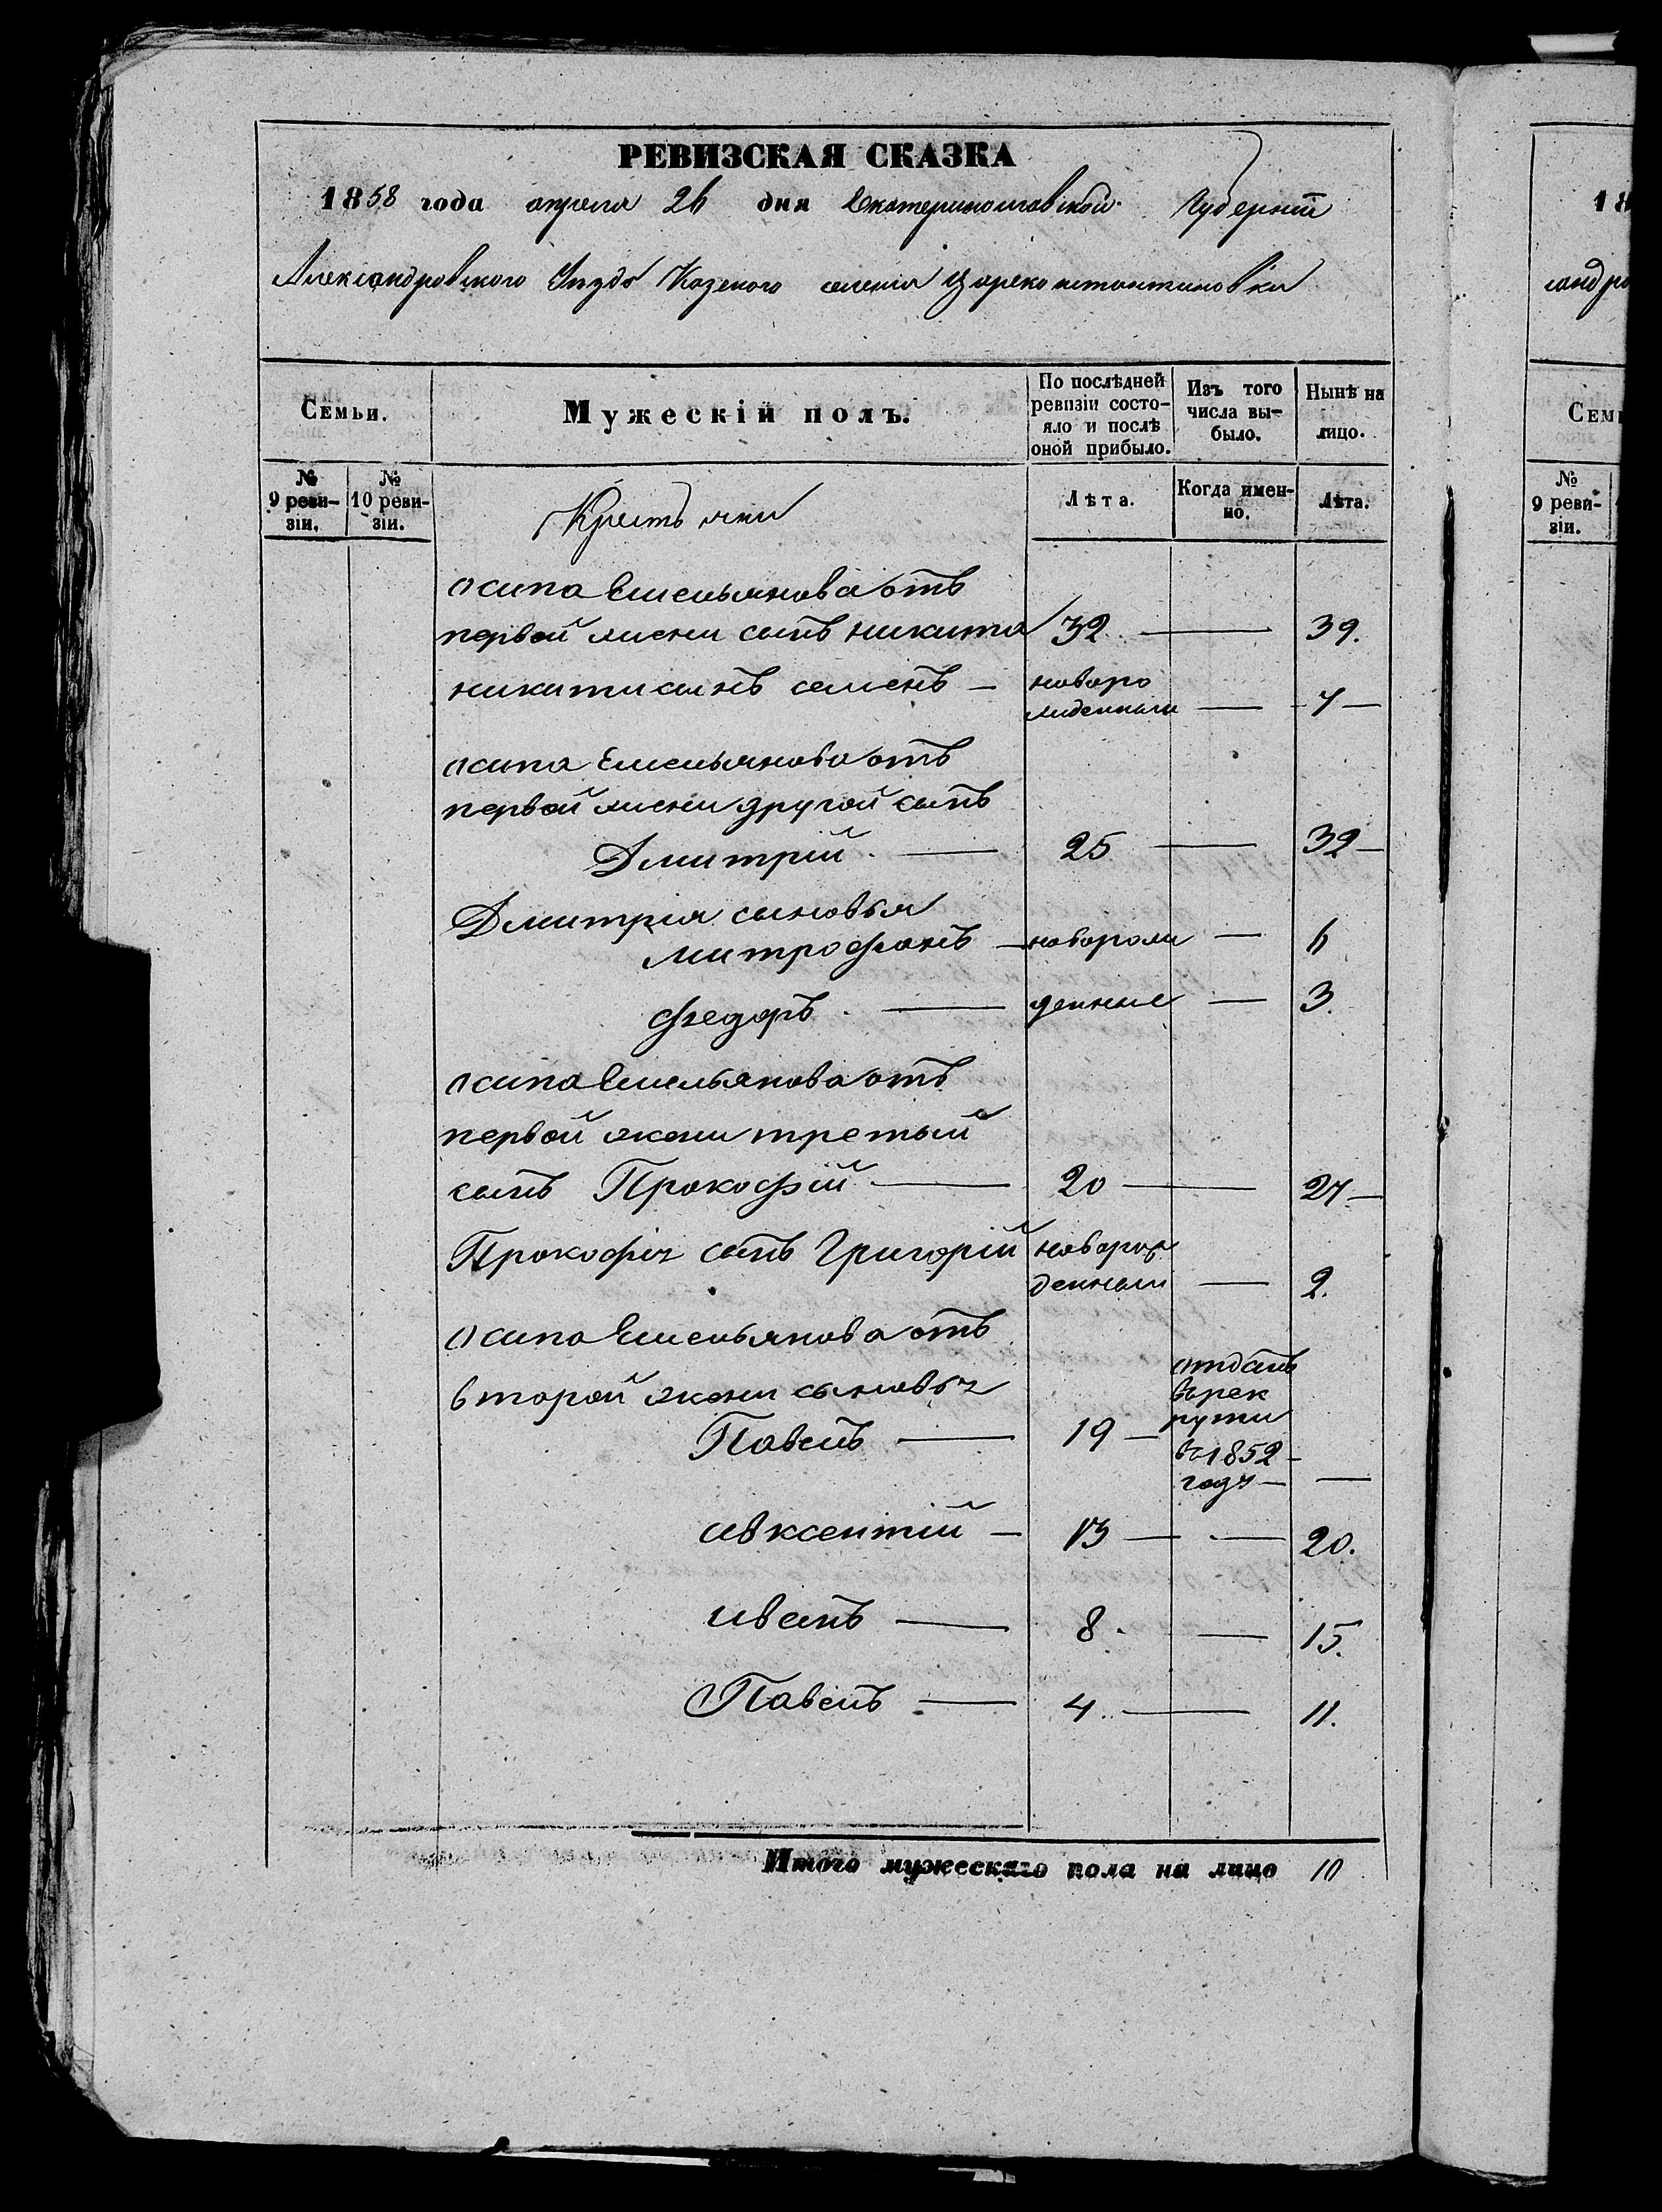 РЕВИЗСКАЯ СКАЗКА
1858 года апреля 26 дня Екатеринославской Губернiи
Александровского Уезда Казеного селения Цареконстантиновки
Семьи.
Мужескiй полъ.
По послѣдней ревизiи состояло и послѣ оной прибыло.
Изъ того числа выбыло.
Нынѣ на лицо.
№ 9 ревизiи.
№ 10 ревизiи.
Крестьяни
Лѣта.
Когда именно.
Лѣта.
осипа Емельянова отъ
первой жени сынъ никита 32 — 39.
никити сынъ семенъ — новоро
жденный — 7 —
осипа Емельянова отъ
первой жени другой сынъ
Дмитрiй. — 25 — 32 —
Дмитрiя сыновья
митрофанъ — наворож — 6
федоръ. — денные — 3.
осипа Емельянова отъ
первой жени третый
сынъ Прокофiй — 20 — 27 —
Прокофiя сынъ Григорiй наворож
денный — 2.
осипа Емельянова отъ
второй жени сыновья
Павелъ — 19 — отданъ
въ рек
рути
въ 1852 —
году — —
авксентiй — 13 — — 20.
иванъ — 8. — 15.
Павелъ — 4.. — 11.
Итого мужескаго пола на лицо 10
18
санд
Семь
№ 9 ревизiи.